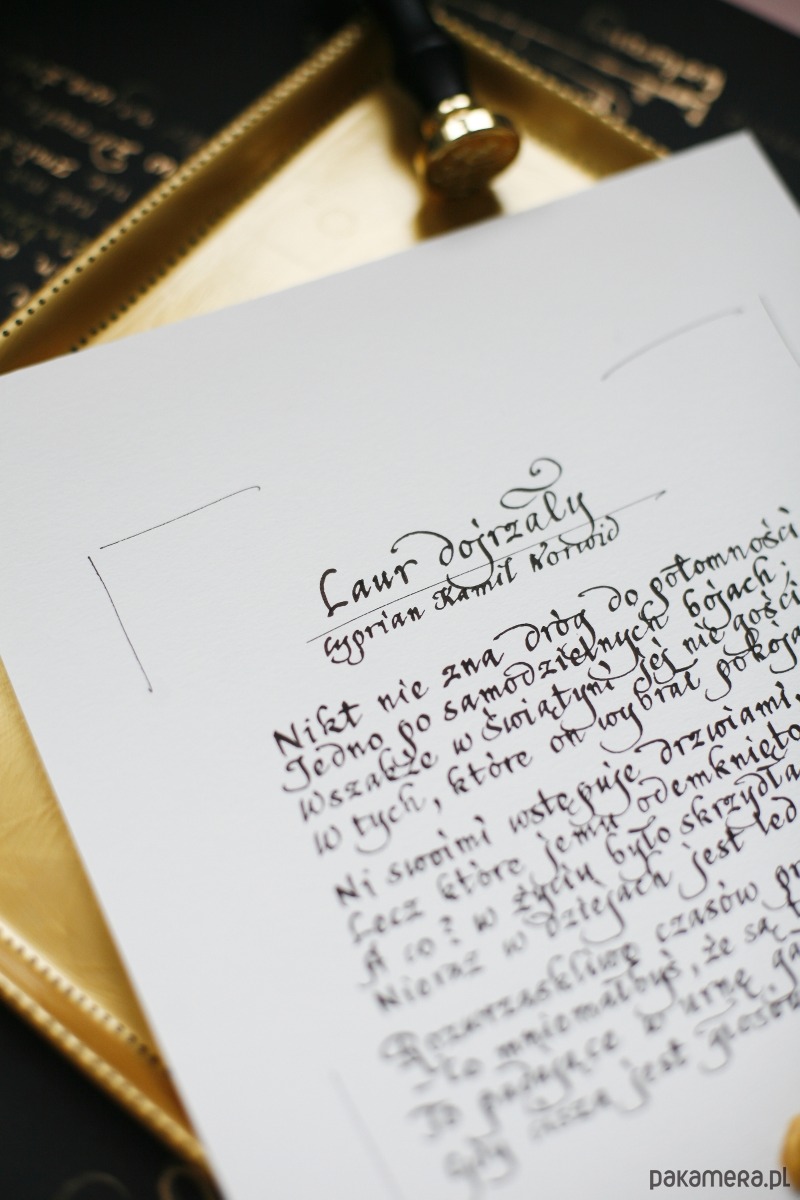 Laur dojrzały
Cyprian Kamil Norwid
Nikt nie zna dróg do potomności
Jedno po samodzielnych bojach;
Wszakże w świątyni jej nie gości
w tych, które on wybrał pokoja
Ni swoimi wstępuje drzwiami,
Lecz które jemu odemknięto
A co? w życiu było skrzydła
Nieraz w dziejach jest led
Rozwrzaskliwe czasów pr
- to mniemałbyś, że są
To padające w urnę
Gdy cisza jest głosów
pakamera.pl